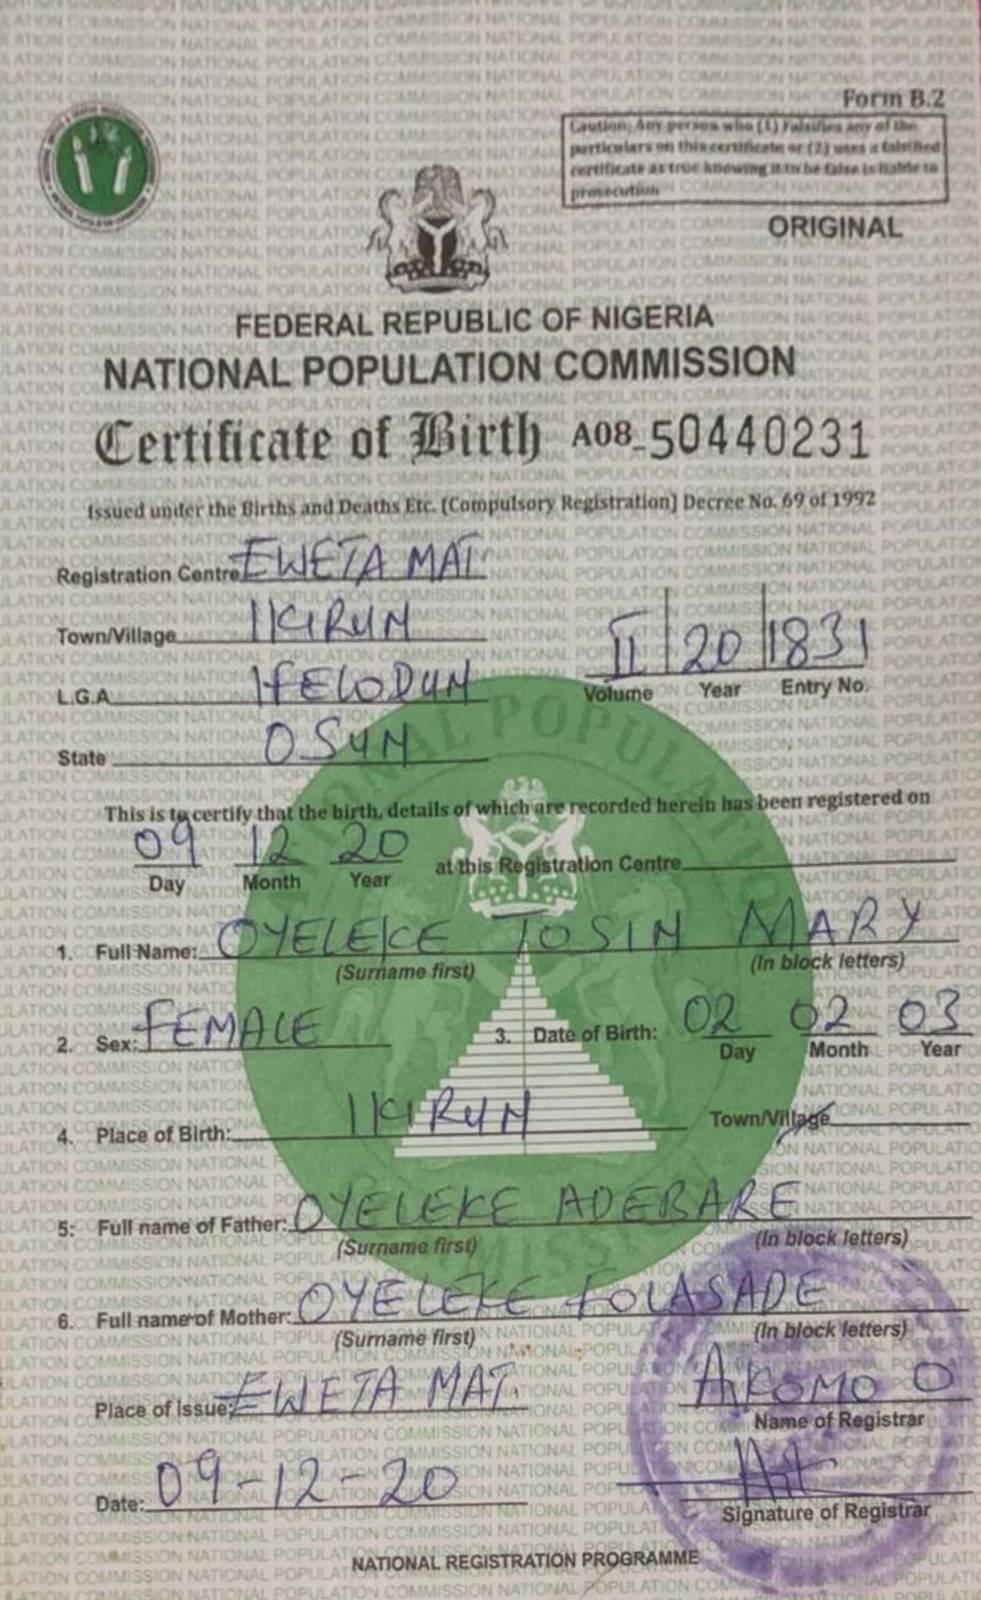 Form B.2
Caution: Any person who (1) Falsifies any of the
particulars on this certificate or (2) uses a falsified
certificate as true knowing it to be false is liable to
prosecution
ORIGINAL
FEDERAL REPUBLIC OF NIGERIA
NATIONAL POPULATION COMMISSION
Certificate of Birth A08-50440231
Issued under the Births and Deaths Etc. (Compulsory Registration) Decree No. 69 of 1992
Registration Centre EWETA MAT.
Town/Village IKIRUN
II 20 1831
L.G.A IFELODUN
Volume Year Entry No.
State OSUN
This is to certify that the birth, details of which are recorded herein has been registered on
09 12 20 at this Registration Centre
Day Month Year
1. Full Name: OYELEKE TOSIN MARY
(Surname first) (In block letters)
2. Sex: FEMALE 3. Date of Birth: 02 02 03
Day Month Year
4. Place of Birth: IKIRUN Town/Village
5: Full name of Father: OYELEKE ADEBARE
(Surname first) (In block letters)
6. Full name of Mother: OYELEKE FOLASADE
(Surname first) (In block letters)
Place of issue EWETA MAT. AKOMO O
Name of Registrar
Date: 09-12-20
Signature of Registrar
NATIONAL REGISTRATION PROGRAMME